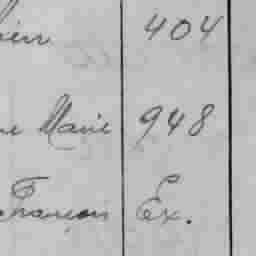 404
Marie 948
François Ex.